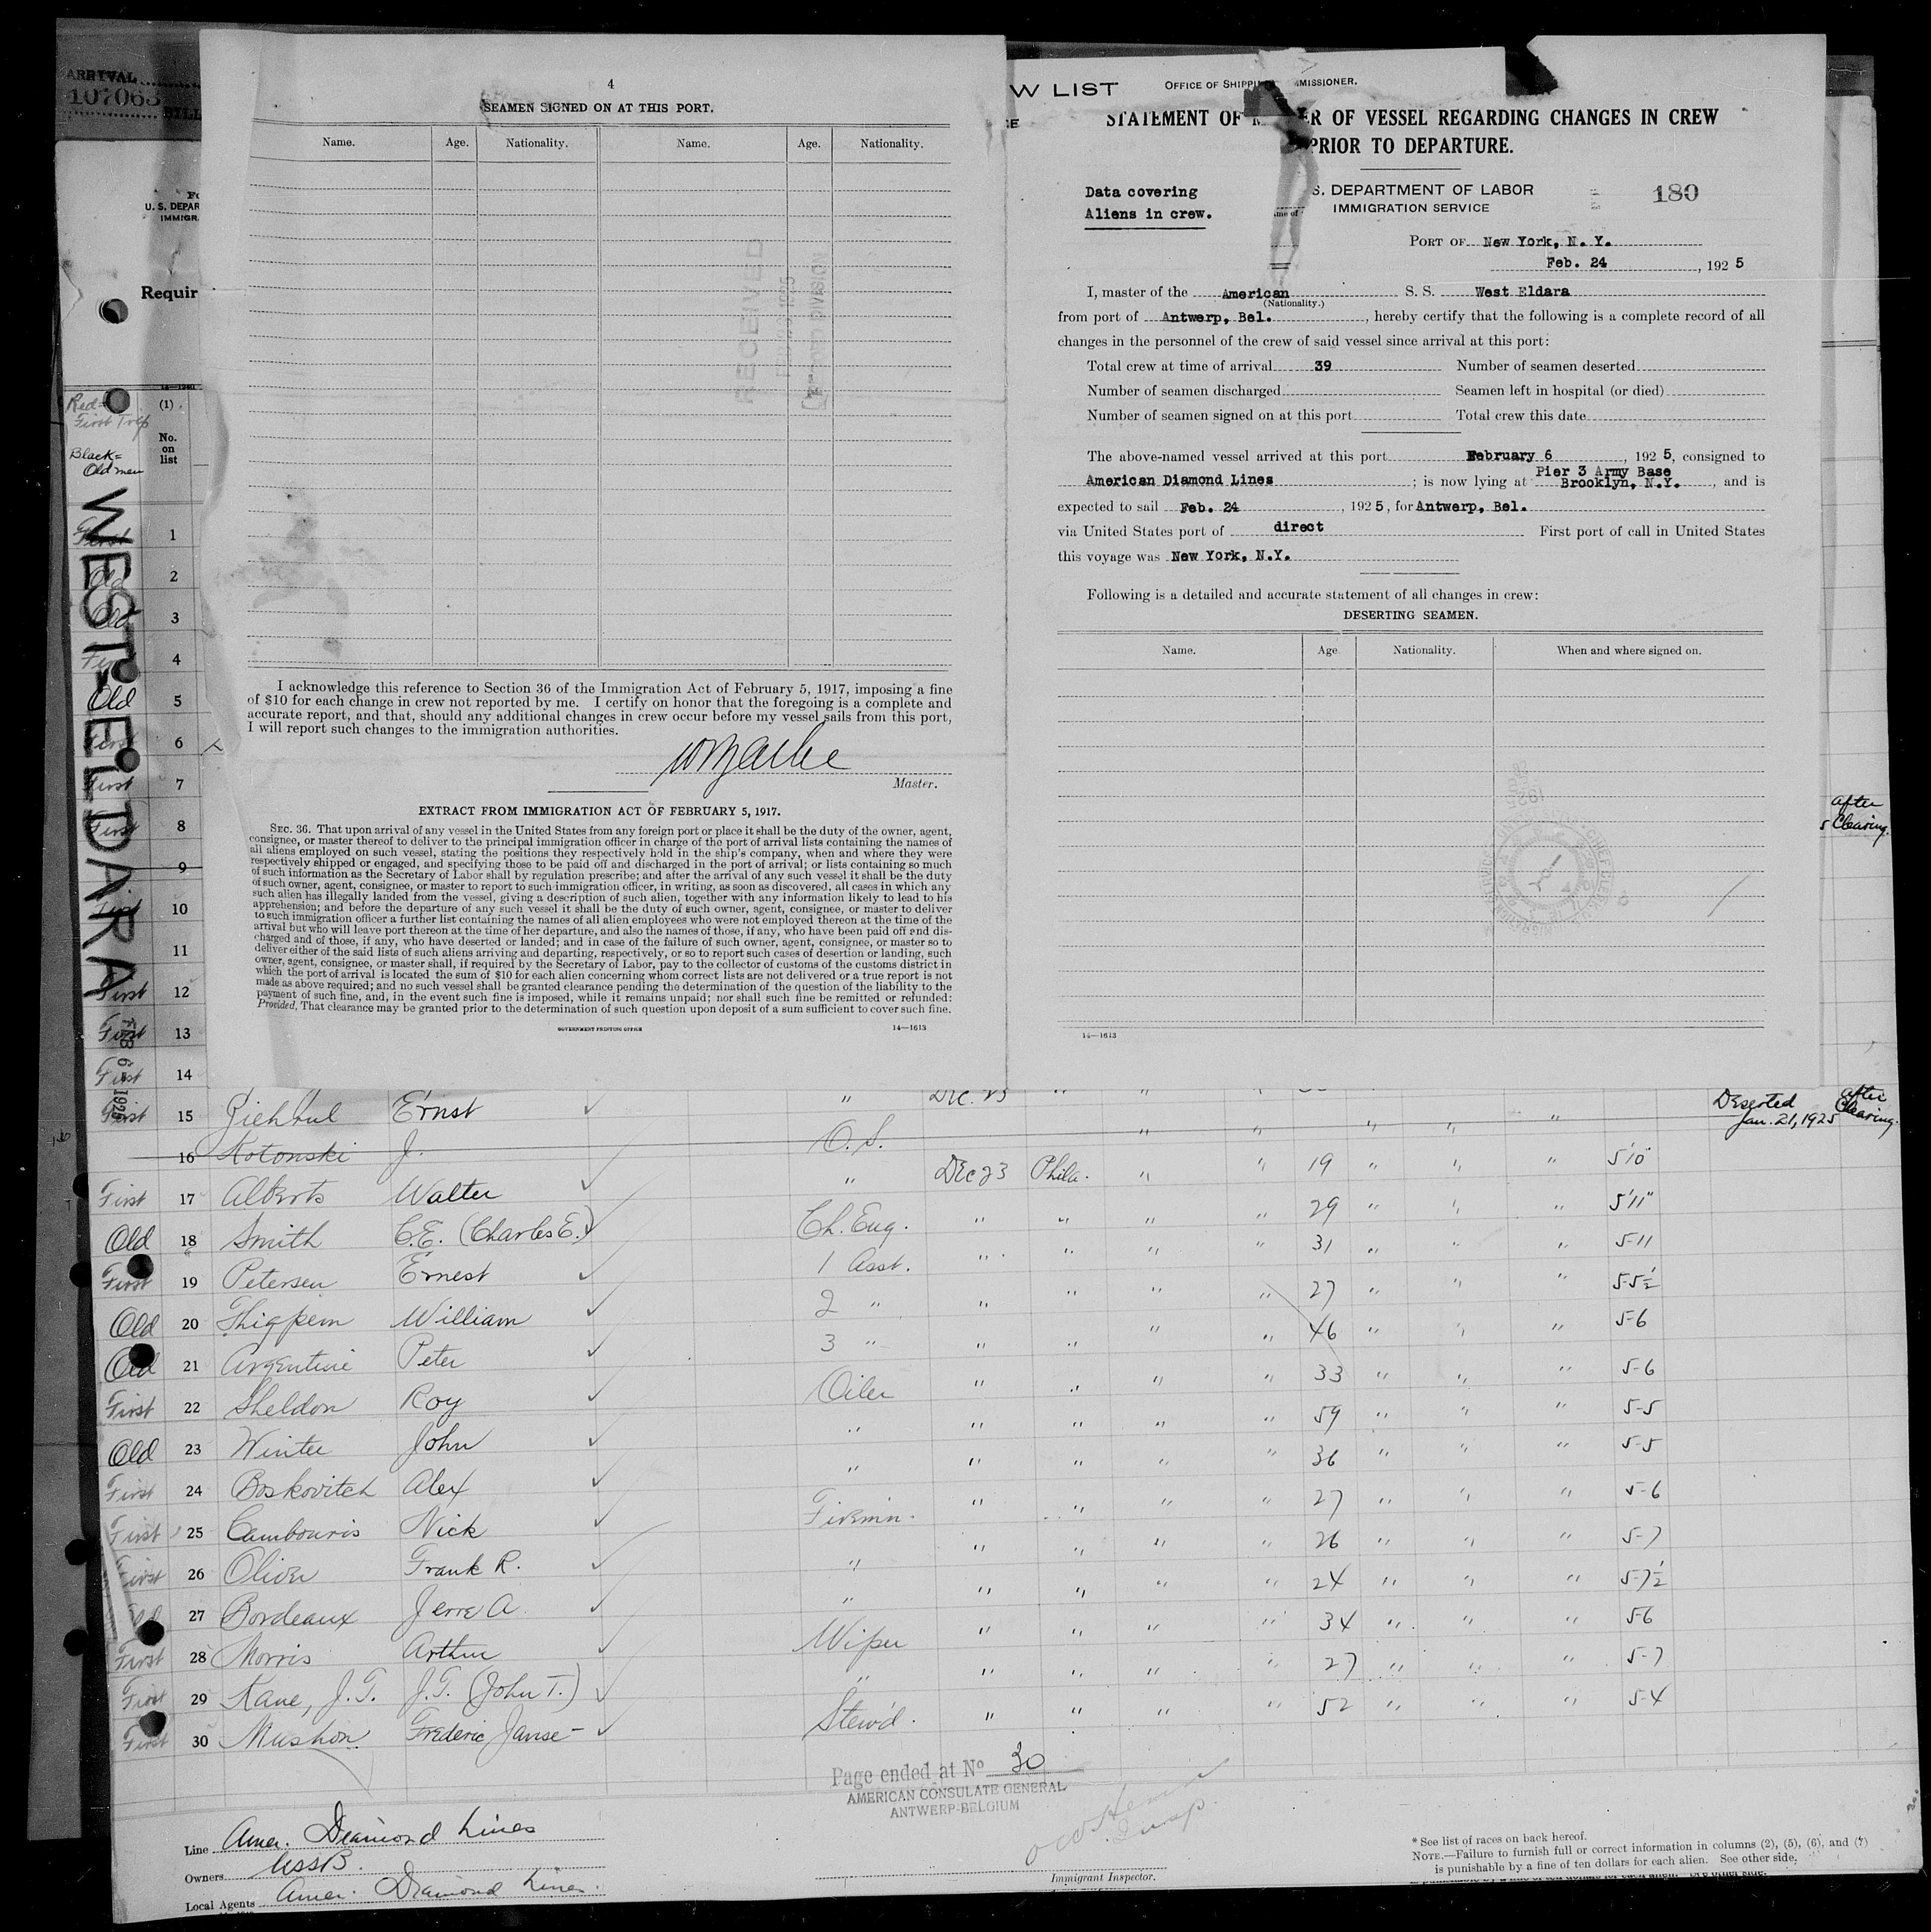 ARRIVAL
107063
BILL
U. S. DEPAR
IMMIGR
Requir
14—1240
Red=
First Trip
Black=
Old men
(1)
No.
on
list
WEST-ELDARA
FEB 6- 1925
First 1
Old 2
Old 3
First 4
Old 5
First 6
First 7
First 8
9
First 10
11
First 12
First 13
First 14
4
SEAMEN SIGNED ON AT THIS PORT.
Name. Age. Nationality. Name. Age. Nationality.
RECEIVED
I acknowledge this reference to Section 36 of the Immigration Act of February 5, 1917, imposing a fine
of $10 for each change in crew not reported by me. I certify on honor that the foregoing is a complete and
accurate report, and that, should any additional changes in crew occur before my vessel sails from this port,
I will report such changes to the immigration authorities.
Master.
EXTRACT FROM IMMIGRATION ACT OF FEBRUARY 5, 1917.
SEC. 36. That upon arrival of any vessel in the United States from any foreign port or place it shall be the duty of the owner, agent,
consignee, or master thereof to deliver to the principal immigration officer in charge of the port of arrival lists containing the names of
all aliens employed on such vessel, stating the positions they respectively hold in the ship's company, when and where they were
respectively shipped or engaged, and specifying those to be paid off and discharged in the port of arrival; or lists containing so much
of such information as the Secretary of Labor shall by regulation prescribe; and after the arrival of any such vessel it shall be the duty
of such owner, agent, consignee, or master to report to such immigration officer, in writing, as soon as discovered, all cases in which any
such alien has illegally landed from the vessel, giving a description of such alien, together with any information likely to lead to his
apprehension; and before the departure of any such vessel it shall be the duty of such owner, agent, consignee, or master to deliver
to such immigration officer a further list containing the names of all alien employees who were not employed thereon at the time of the
arrival but who will leave port thereon at the time of her departure, and also the names of those, if any, who have been paid off and dis-
charged and of those, if any, who have deserted or landed; and in case of the failure of such owner, agent, consignee, or master so to
deliver either of the said lists of such aliens arriving and departing, respectively, or so to report such cases of desertion or landing, such
owner, agent, consignee, or master shall, if required by the Secretary of Labor, pay to the collector of customs of the customs district in
which the port of arrival is located the sum of $10 for each alien concerning whom correct lists are not delivered or a true report is not
made as above required; and no such vessel shall be granted clearance pending the determination of the question of the liability to the
payment of such fine, and, in the event such fine is imposed, while it remains unpaid; nor shall such fine be remitted or refunded:
Provided, That clearance may be granted prior to the determination of such question upon deposit of a sum sufficient to cover such fine.
GOVERNMENT PRINTING OFFICE 14—1613
W LIST
OFFICE OF SHIPPI MISSIONER.
STATEMENT OF M ER OF VESSEL REGARDING CHANGES IN CREW
PRIOR TO DEPARTURE.
Data covering
Aliens in crew.
S. DEPARTMENT OF LABOR
IMMIGRATION SERVICE
180
PORT OF New York, N. Y.
Feb. 24, 1925
I, master of the American S. S. West Eldara
(Nationality.)
from port of Antwerp, Bel., hereby certify that the following is a complete record of all
changes in the personnel of the crew of said vessel since arrival at this port:
Total crew at time of arrival 39 Number of seamen deserted
Number of seamen discharged Seamen left in hospital (or died)
Number of seamen signed on at this port Total crew this date
The above-named vessel arrived at this port February 6, 1925, consigned to
American Diamond Lines; is now lying at Pier 3 Army Base Brooklyn, N.Y., and is
expected to sail Feb. 24, 1925, for Antwerp, Bel.
via United States port of direct First port of call in United States
this voyage was New York, N.Y.
Following is a detailed and accurate statement of all changes in crew:
DESERTING SEAMEN.
Name. Age. Nationality. When and where signed on.
14—1613
after
Clearing.
First 15 Ernst " Dec. 23 " " "
Deserted Jan. 21, 1925 after Clearing.
16 Kotonski J. O. S. " " " " "
First 17 Alberts Walter " Dec 23 Phila. " " 19 " " " 5'10"
Old 18 Smith C.E. (Charles E.) Ch. Eng. " " " " 29 " " " 5'11"
First 19 Petersen Ernest 1 Asst. " " " " 31 " " " 5-11
Old 20 Thigpem William 2 " " " " " 27 " " " 5-5½
Old 21 Argentine Peter 3 " " " " " 46 " " " 5-6
First 22 Sheldon Roy Oiler " " " " 33 " " " 5-6
Old 23 Winter John " " " " " 59 " " " 5-5
First 24 Boskovitch Alex " " " " " 36 " " " 5-5
First 25 Cambouris Nick Firemn. " " " " 27 " " " 5-6
First 26 Oliver Frank R. " " " " " 26 " " " 5-7
Old 27 Bordeaux Jerre A. " " " " " 24 " " " 5-7½
First 28 Morris Arthur Wiper " " " " 34 " " " 5-6
First 29 Kane, J.T. J.T. (John T.) " " " " " 27 " " " 5-7
First 30 Mushon Frederic Janse- Stew'd. " " " " 52 " " " 5-4
Page ended at No 30
AMERICAN CONSULATE GENERAL
ANTWERP-BELGIUM
Line Amer. Diamond Lines
Owners USSB.
Local Agents Amer. Diamond Lines.
Immigrant Inspector.
* See list of races on back hereof.
NOTE.—Failure to furnish full or correct information in columns (2), (5), (6), and (7)
is punishable by a fine of ten dollars for each alien. See other side.